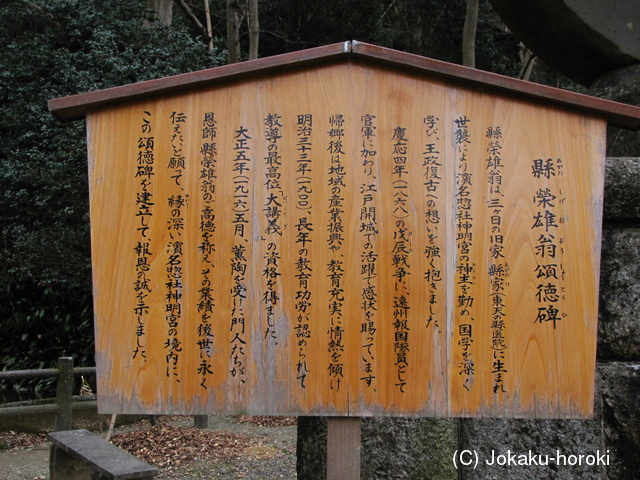 縣榮雄翁頌徳碑
縣榮雄翁は、三ヶ日の旧家 縣家(東天の縣医院)に生まれ
世襲により濱名惣社神明宮の神主を勤め、国学を深く
学び、王政復古への想いを強く抱きました。
慶応四年(一八六八)の戊辰戦争に、遠州報国隊員として
官軍に加わり、江戸開城での活躍で感状を賜っています。
帰郷後は地域の産業振興や、教育充実に情熱を傾け
明治三十三年(一九〇〇)、長年の教育功労が認められて
教導の最高位「大講義」の資格を得ました。
大正五年(一九一六)五月、薫陶を受けた門人たちが、
恩師 縣榮雄翁の高徳を称え、その業績を後世に永く
伝えたいと願って、縁の深い濱名惣社神明宮の境内に、
この頌徳碑を建立して、報恩の誠を示しました。
(C) Jokaku-horoki